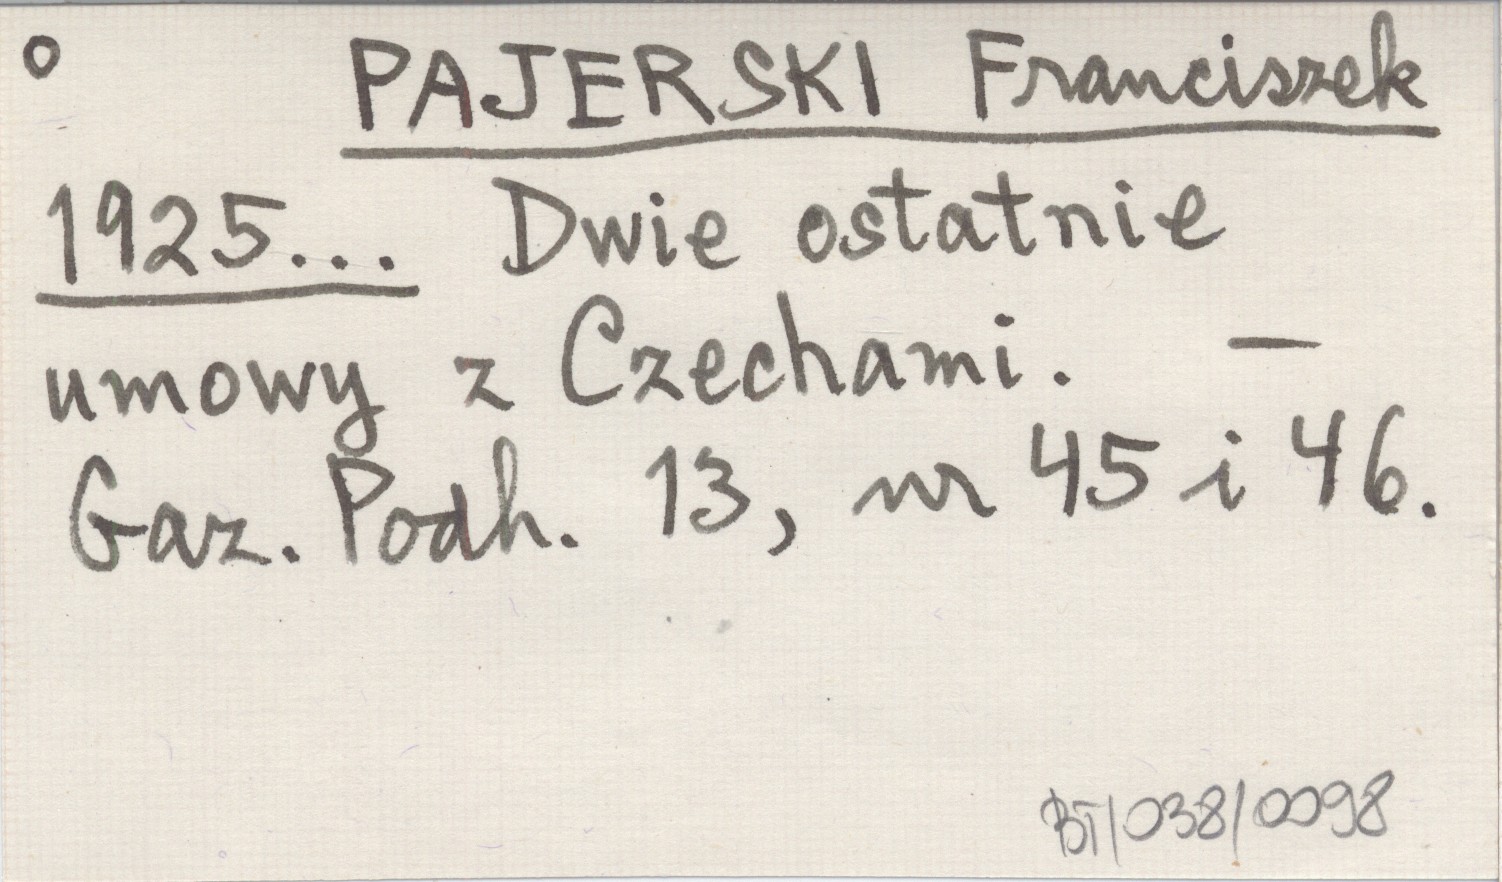 o PAJERSKI Franciszek
1925... Dwie ostatnie
umowy z Czechami. —
Gaz. Podh. 13, nr 45 i 46.
BT/038/0098